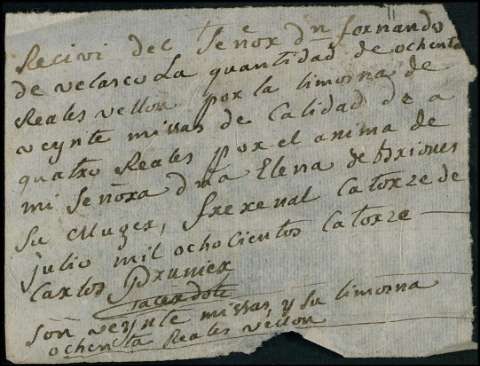 Recivi del Señor dn fernando
de velasco La quantidad de ochenta
Reales vellon por la limosna de
veynte missas de calidad de a
quatro Reales por el anima de
mi Señora dña Elena de
su Muger, frexenal catorze de
julio mil ochocientos catorze
Carlos
Sacerdote
son veynte missas, y su limosna
ochenta Reales vellon